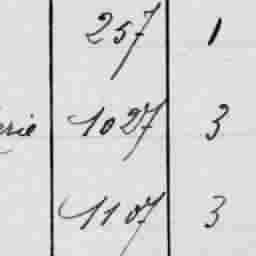 257 1
1027 3
1107 3